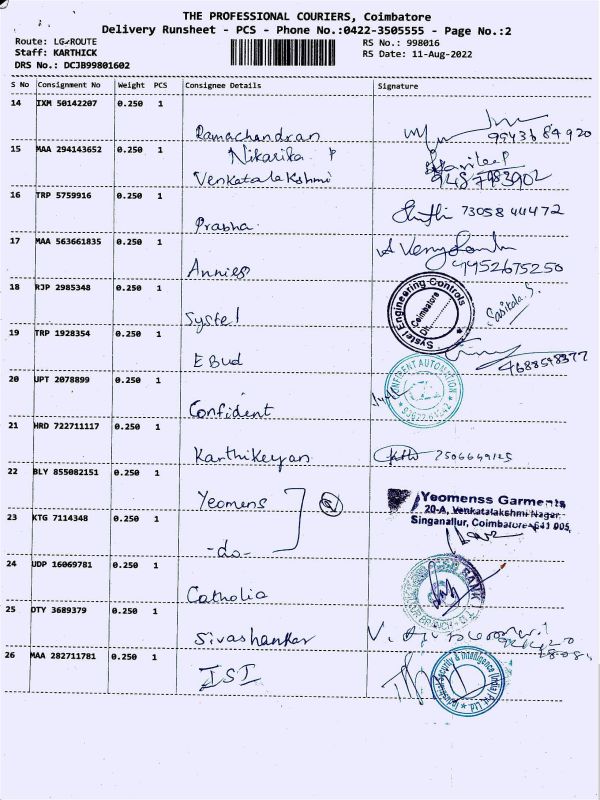 THE PROFESSIONAL COURIERS, Coimbatore
Delivery Runsheet - PCS - Phone No.:0422-3505555 - Page No.:2
Route: LG-ROUTE
Staff: KARTHICK
DRS No.: DCJB99801602
RS No.: 998016
RS Date: 11-Aug-2022
S No Consignment No Weight PCS Consignee Details Signature
14 IXM 50142207 0.250 1
Ramachandran
9943684920
15 MAA 294143652 0.250 1
Nikarika P
Venkatalakshmi
9487783902
16 TRP 5759916 0.250 1
Prabha
7305844472
17 MAA 563661835 0.250 1
Annies
9952675250
18 RJP 2985348 0.250 1
Systel
Systel Engineering Controls
Coimbatore
Dt.
Sasikala. S
19 TRP 1928354 0.250 1
EBud
20 UPT 2078899 0.250 1
Confident
CONFIDENT AUTOMATION
21 HRD 722711117 0.250 1
Karthikeyan
7506649125
22 BLY 855082151 0.250 1
Yeomens
Yeomenss Garments
20-A, Venkatalakshmi Nagar,
Singanallur, Coimbatore-641 005.
23 KTG 7114348 0.250 1
-do-
24 UDP 16069781 0.250 1
Catholia
BANK
25 OTY 3689379 0.250 1
Sivashankar
26 MAA 282711781 0.250 1
ISI
Industrial Security & Intelligence (India) Pvt. Ltd